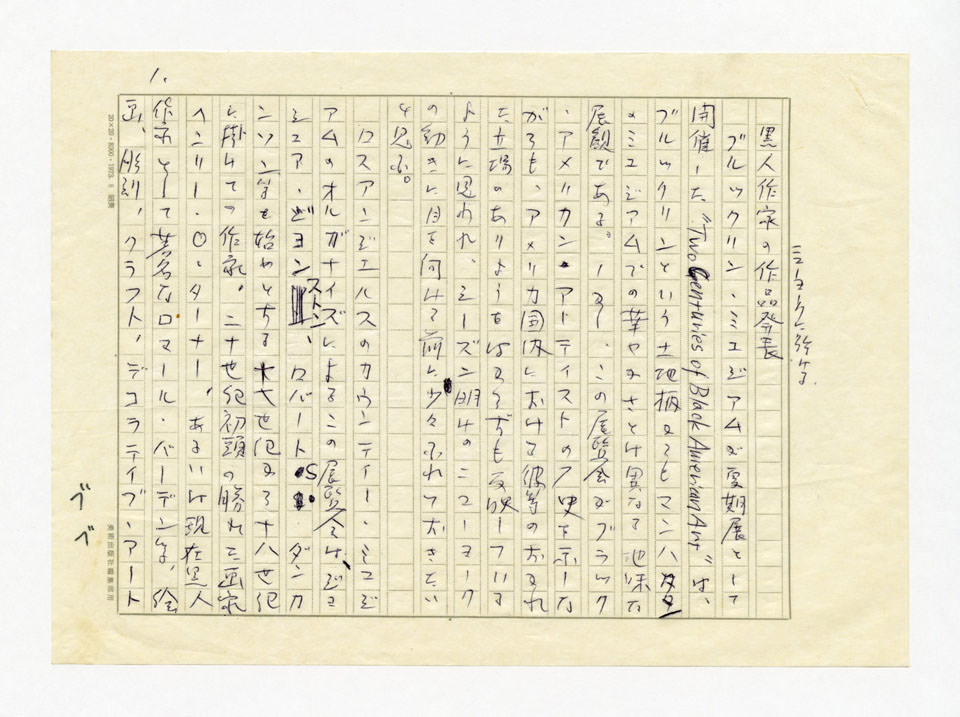 黒人作家の作品発表
ブルックリン・ミュジアムが夏期展として
開催した“Two Centuries of Black American Art”は、
ブルックリンという土地柄からもマンハタン
のミュジアムでの華やかさとは異なる地味な
展観である。しかし、この展覧会がブラック
・アメリカン・アーティストの歴史を示しな
がらも、アメリカ国内における彼等のおかれ
た立場のありようをはからずも反映している
ように思われ、シーズン明けのニューヨーク
の動きに目を向ける前に少々ふれておきたい
と思ふ。
ロスアンジェルスのカウンティー・ミュジ
アムのオルガナイズによるこの展覧会は、ジョ
シュア・ジョンストン、ロバート・S・ダンカ
ンソン等を始めとする十七世紀から十八世紀
に掛けての作家。二十世紀初頭の勝れた画家
ヘンリー・O・ターナー、あるいは現在黒人
作家として著名なロマール・バーデン等、絵
画、彫刻、クラフト、デコラティブ・アート
1.
20×20
ブ
ブ